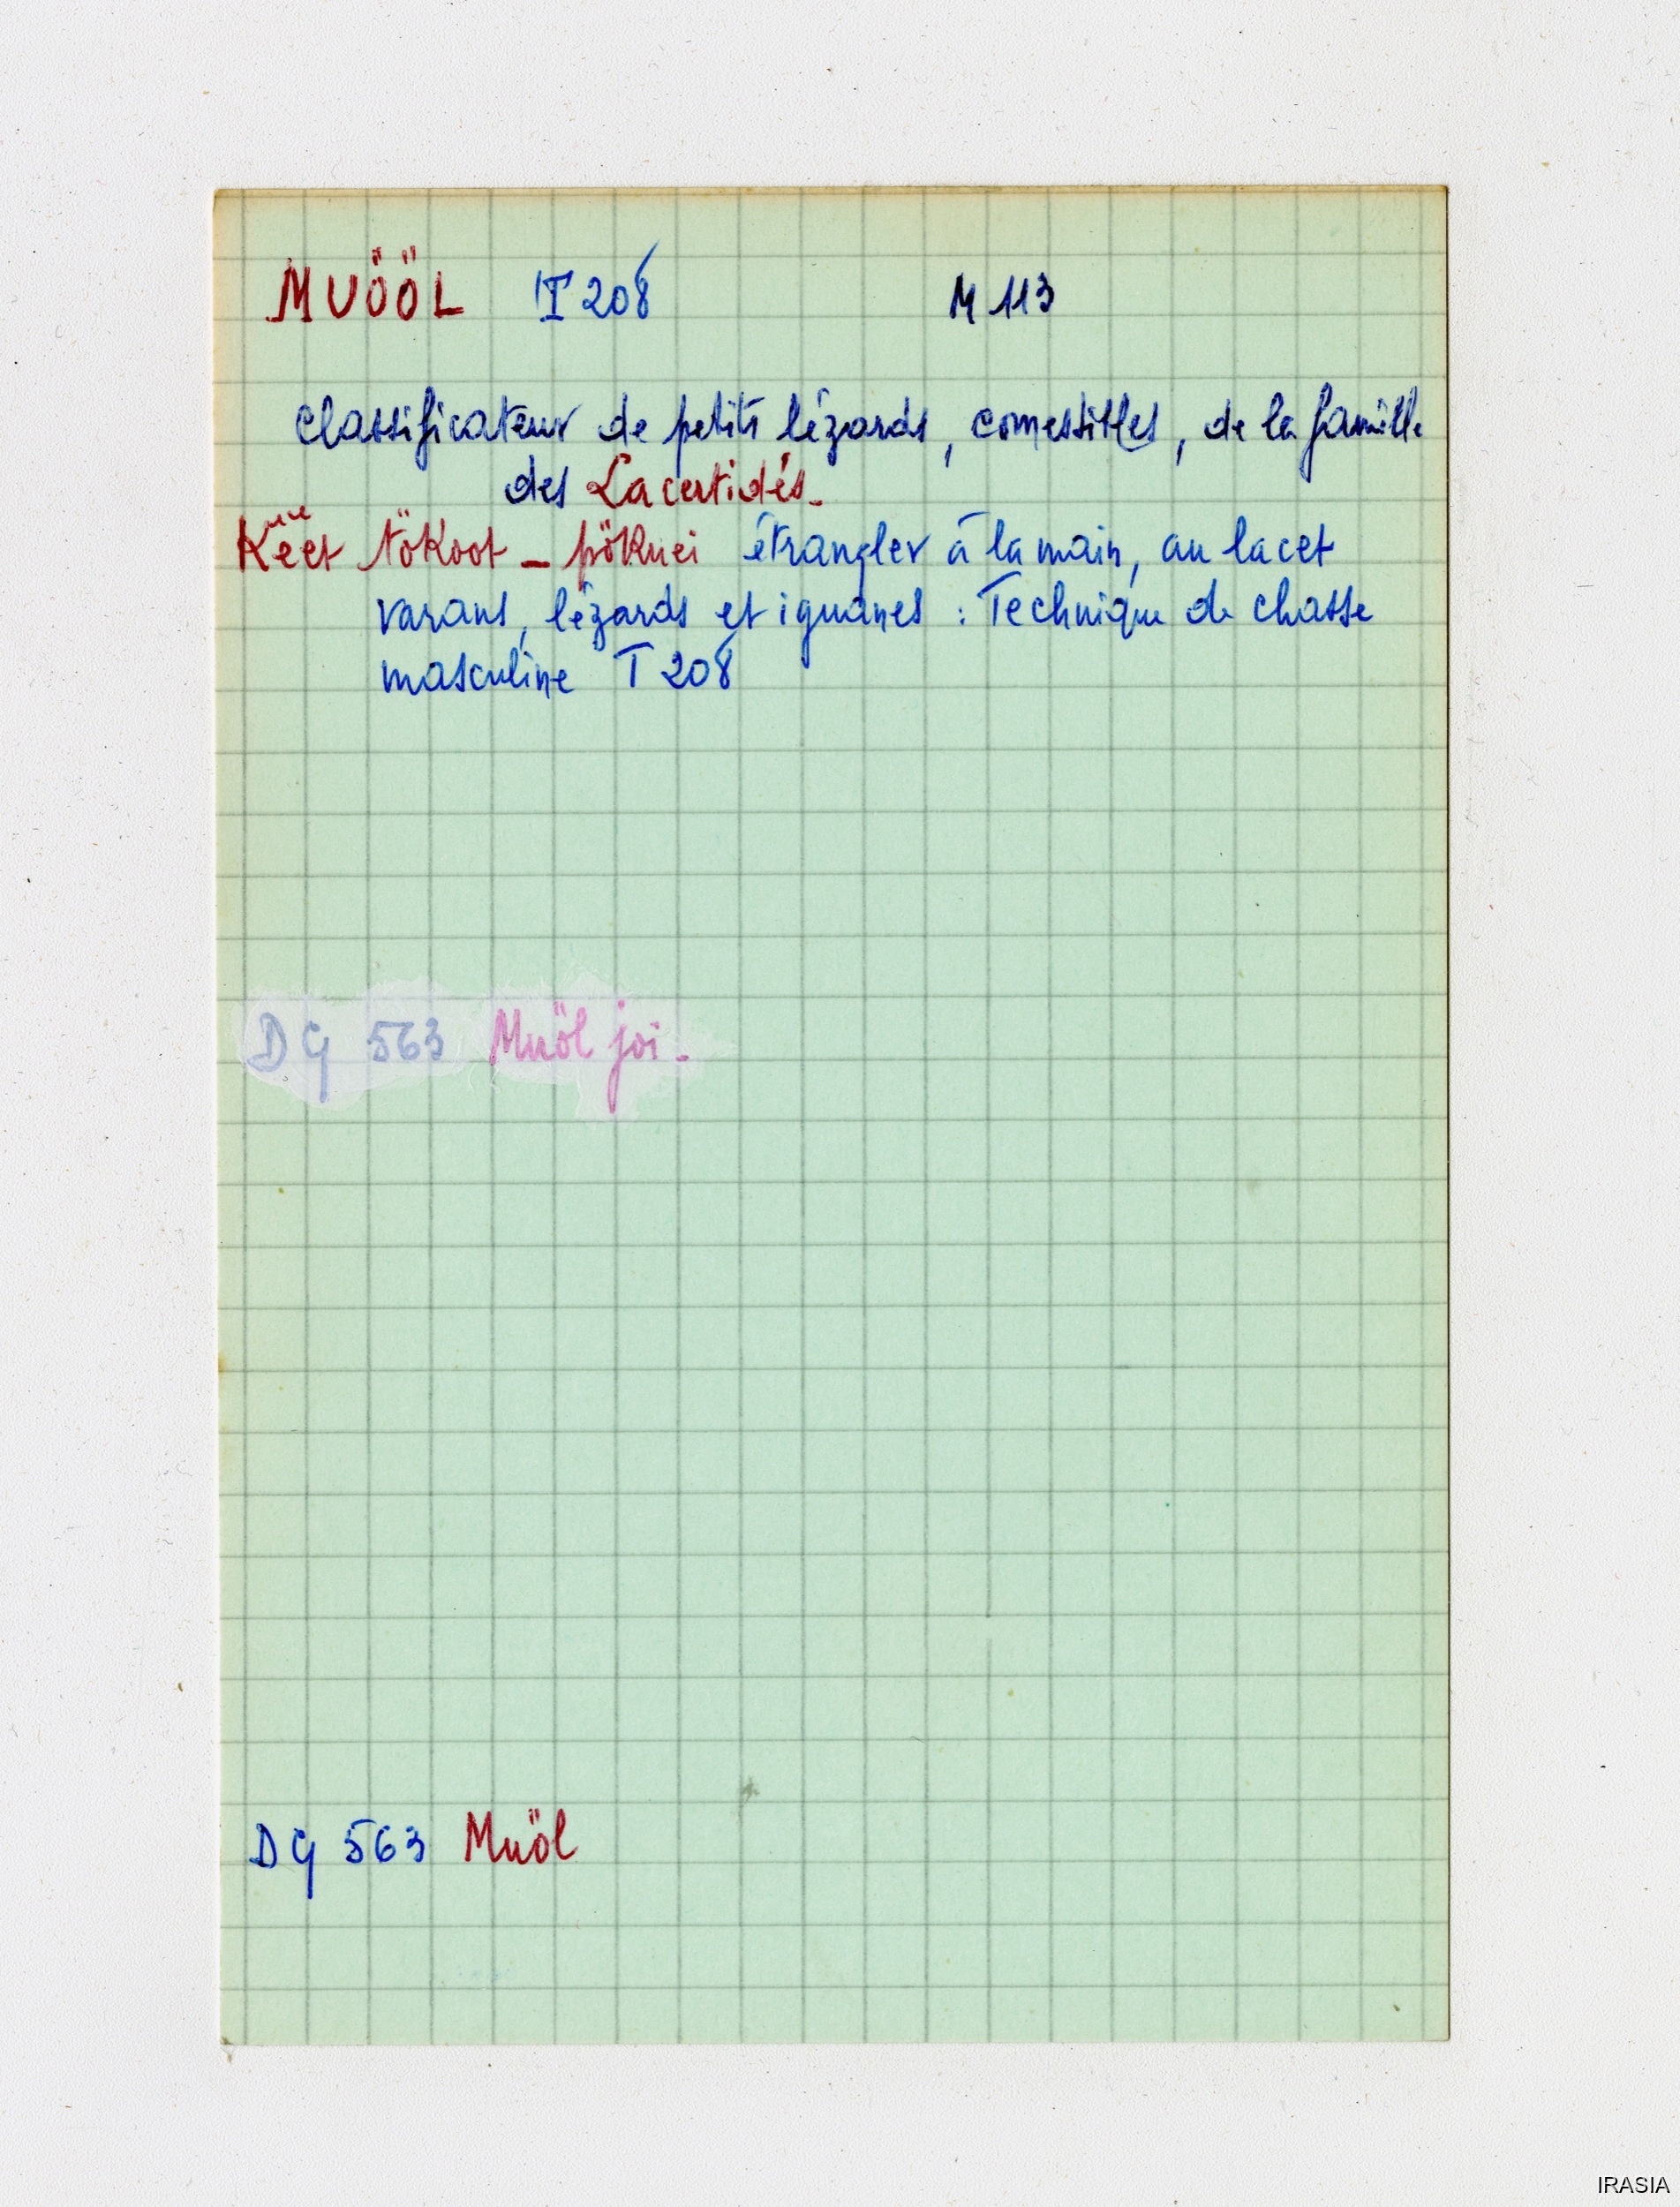 MUÖÖL T 208 M 113
Classificateur de petits lézards, comestibles, de la famille
des Lacertidés.
Këët tökoot - pökuei étrangler à la main, au lacet
varans, lézards et iguanes : Technique de chasse
masculine T 208
DG 563 Muöl joi.
DG 563 Muöl
IRASIA